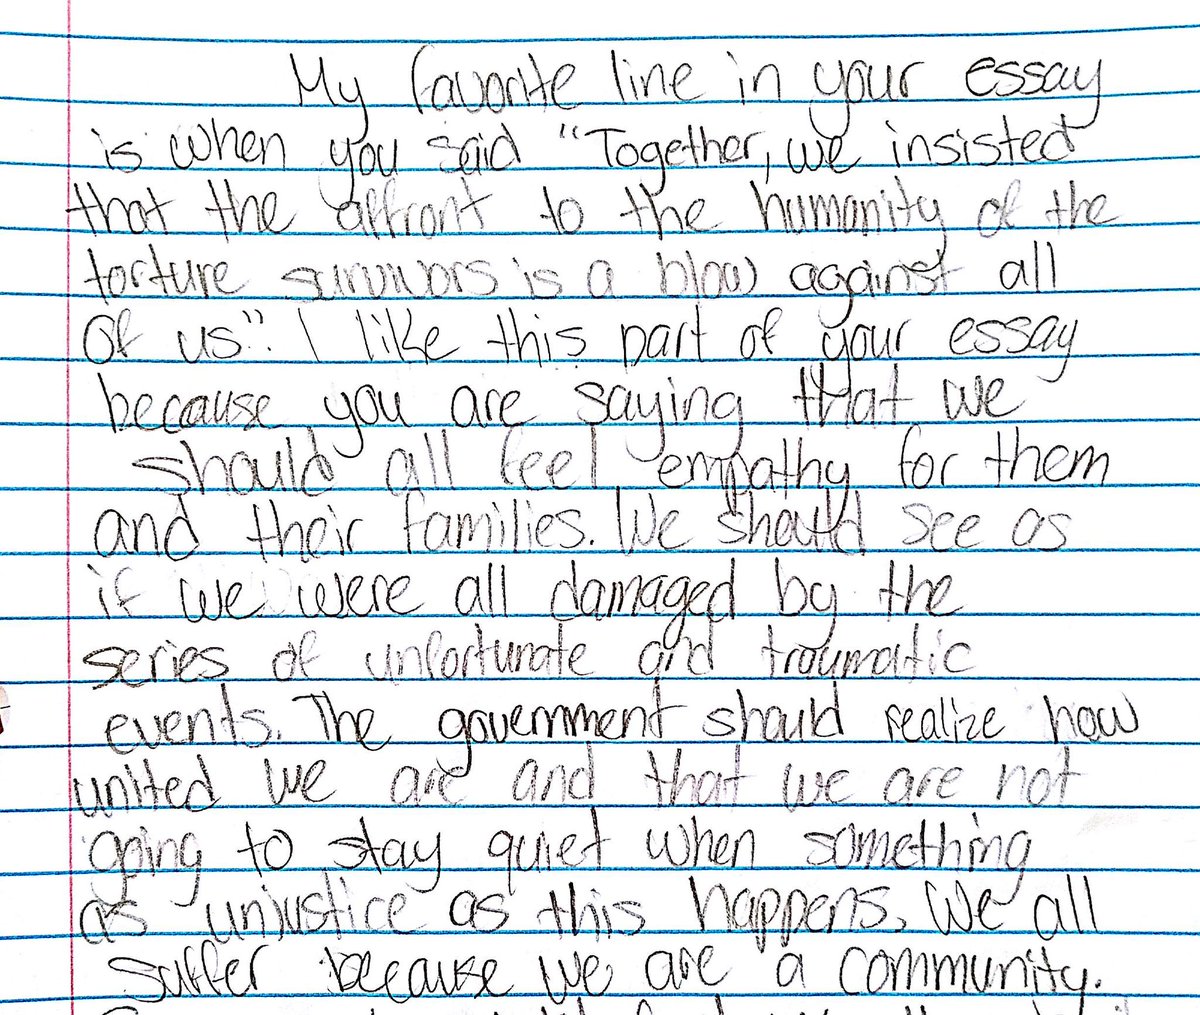 My favorite line in your essay
is when you said "Together, we insisted
that the affront to the humanity of the
torture survivors is a blow against all
of us". I like this part of your essay
because you are saying that we
should all feel empathy for them
and their families. We should see as
if we were all damaged by the
series of unfortunate and traumatic
events. The government should realize how
united we are and that we are not
going to stay quiet when something
as unjustice as this happens. We all
suffer because we are a community.